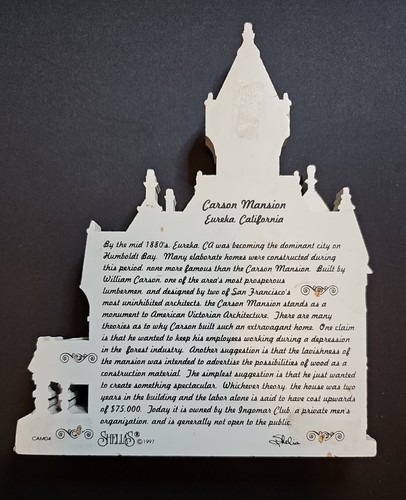 Carson Mansion
Eureka, California
By the mid 1880's, Eureka, CA was becoming the dominant city on
Humboldt Bay. Many elaborate homes were constructed during
this period, none more famous than the Carson Mansion. Built by
William Carson, one of the area's most prosperous
lumbermen, and designed by two of San Francisco's
most uninhibited architects, the Carson Mansion stands as a
monument to American Victorian Architecture. There are many
theories as to why Carson built such an extravagant home. One claim
is that he wanted to keep his employees working during a depression
in the forest industry. Another suggestion is that the lavishness of
the mansion was intended to advertise the possibilities of wood as a
construction material. The simplest suggestion is that he just wanted
to create something spectacular. Whichever theory, the house was two
years in the building and the labor alone is said to have cost upwards
of $75,000. Today it is owned by the Ingomar Club, a private men's
organization, and is generally not open to the public.
CAM04
SHELIA'S ® ©1997
Shelia